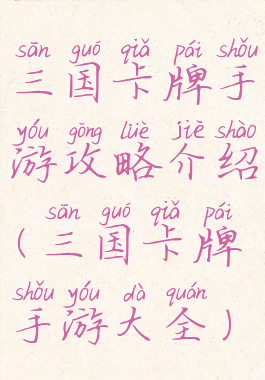 sān guó qiǎ pái shǒu
三国卡牌手
yóu gōng lüè jiè shào
游攻略介绍
sān guó qiǎ pái
(三国卡牌
shǒu yóu dà quán
手游大全)